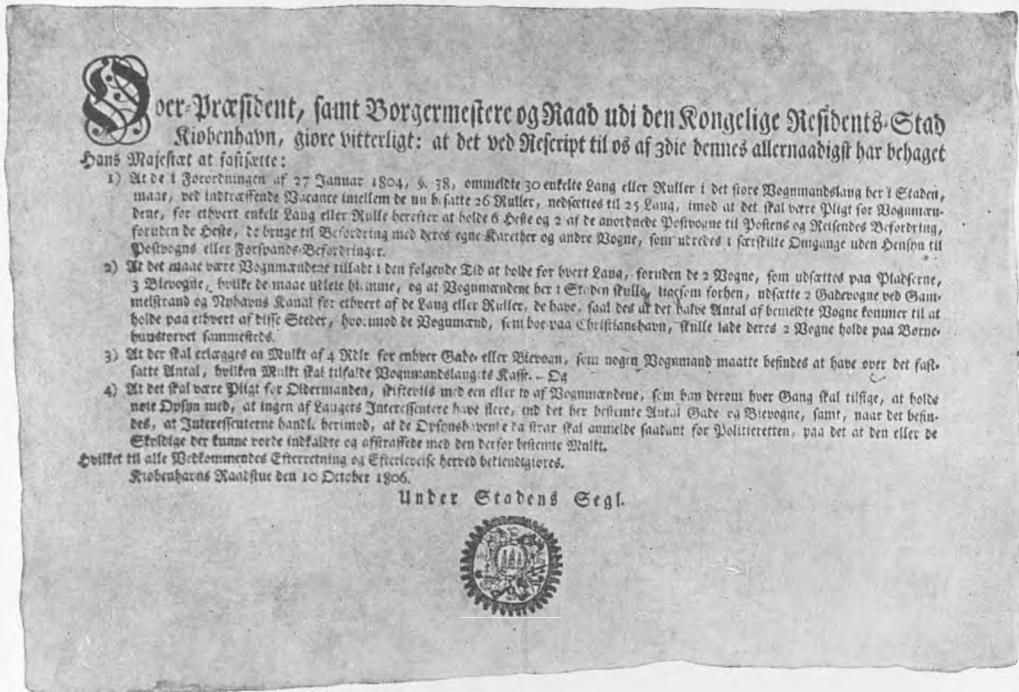 Over-Præsident, samt Borgermestere og Raad udi den Kongelige Residents-Stad
Kiøbenhavn, giøre vitterligt: at det ved Rescript til os af 3die dennes allernaadigst har behaget
Hans Majestæt at fastsætte:
1) At de i Forordningen af 27 Januar 1804, §. 38, ommeldte 30 enkelte Laug eller Ruller i det store Vognmandslaug her i Staden,
maae, ved indtræffende Vacance imellem de nu besatte 26 Ruller, nedsættes til 25 Laug, imod at det skal være Pligt for Vognmæn-
dene, for ethvert enkelt Laug eller Rulle herefter at holde 6 Heste og 2 af de anordnede Postvogne til Postens og Reisendes Befordring,
foruden de Heste, de bruge til Befordring med deres egne Karether og andre Vogne, som udredes i særskilte Omgange uden Hensyn til
Postvogns eller Forspands-Befordringer.
2) At det maae være Vognmændene tilladt i den følgende Tid at holde for hvert Laug, foruden de 2 Vogne, som udsættes paa Pladserne,
3 Bievogne, hvilke de maae udleie hiemme, og at Vognmændene her i Staden skulle, ligesom forhen, udsætte 2 Gadevogne ved Gam-
melstrand og Nyhavns Kanal for ethvert af de Laug eller Ruller, de have, saaledes at det halve Antal af bemeldte Vogne kommer til at
holde paa ethvert af disse Steder, hvorimod de Vognmænd, som boe paa Christianshavn, skulle lade deres 2 Vogne holde paa Børne-
huustorvet sammesteds.
3) At der skal erlægges en Mulkt af 4 Rdlr for enhver Gade- eller Bievogn, som nogen Vognmand maatte befindes at have over det fast-
satte Antal, hvilken Mulkt skal tilfalde Vognmandslaugets Kasse. - Og
4) At det skal være Pligt for Oldermanden, skifteviis med een eller to af Vognmændene, som han derom hver Gang skal tilsige, at holde
nøie Opsyn med, at ingen af Laugets Interessentere have flere, end det her bestemte Antal Gade- og Bievogne, samt, naar det befin-
des, at Interessenterne handle herimod, at de Opsynshavende da strax skal anmelde saadant for Politieretten, paa det at den eller de
Skyldige der kunne vorde indkaldte og afstraffede med den derfor bestemte Mulkt.
Hvilket til alle Vedkommendes Efterretning og Efterlevelse herved bekiendtgiøres.
Kiøbenhavns Raadstue den 10 October 1806.
Under Stadens Segl.